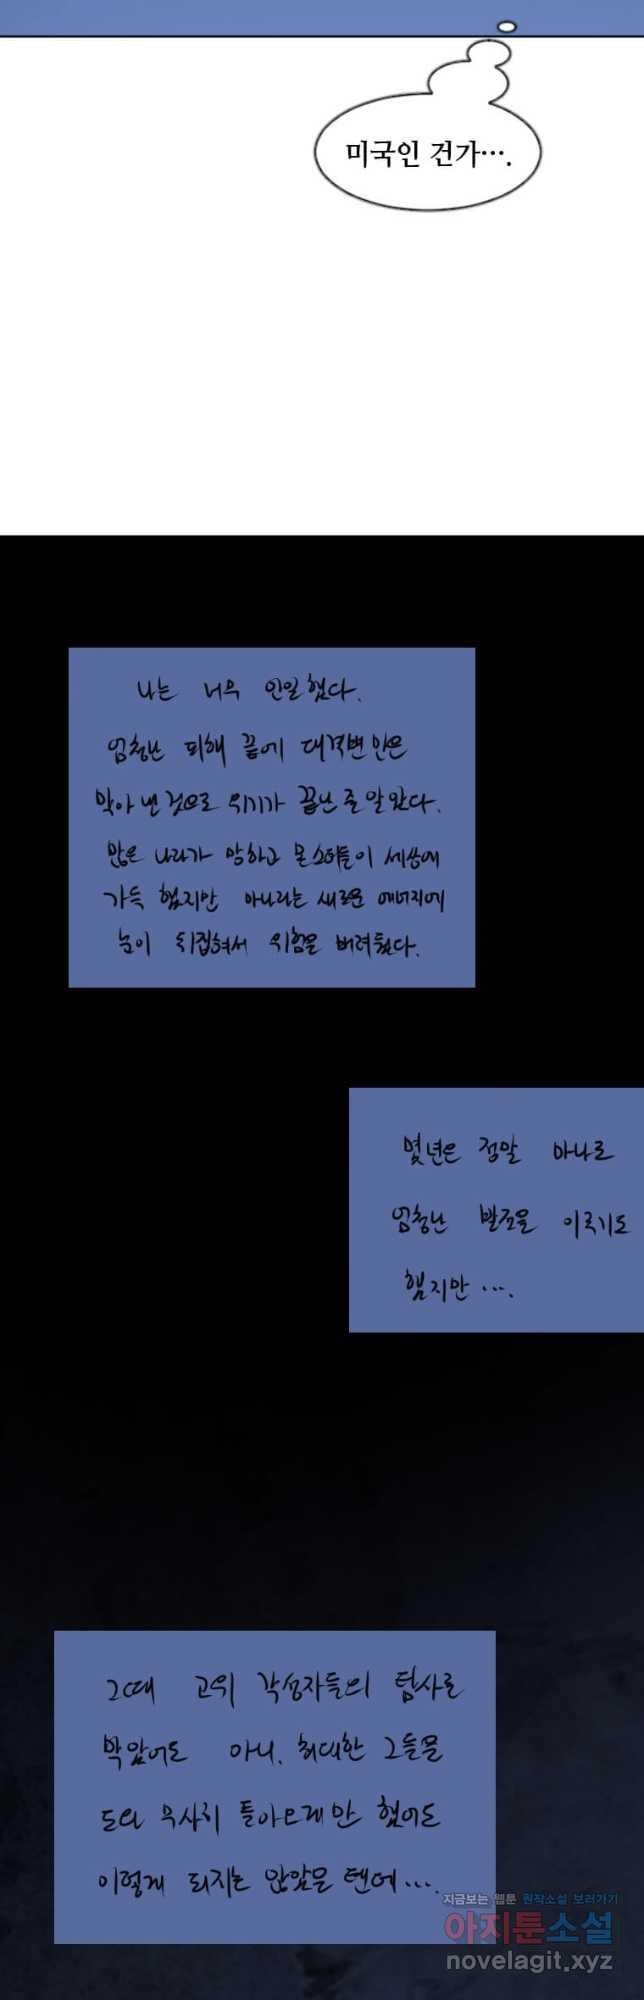 미국인 건가….
나는 너무 안일했다.
엄청난 피해 끝에 대격변 만은
막아 낸 것으로 위기가 끝난 줄 알았다.
많은 나라가 망하고 몬스터들이 세상에
가득 했지만 아니라는 새로운 에너지에
눈이 뒤집혀서 위험을 버려뒀다.
몇년은 정말 마나로
엄청난 발전을 이루기도
했지만….
그때 고위 각성자들의 탐사를
막았어도 아니, 최대한 그들을
도와 무사히 돌아오게만 했어도
이렇게 되지는 않았을 텐데….
지금보는 웹툰 원작소설 보러가기
아지툰소설
novelagit.xyz